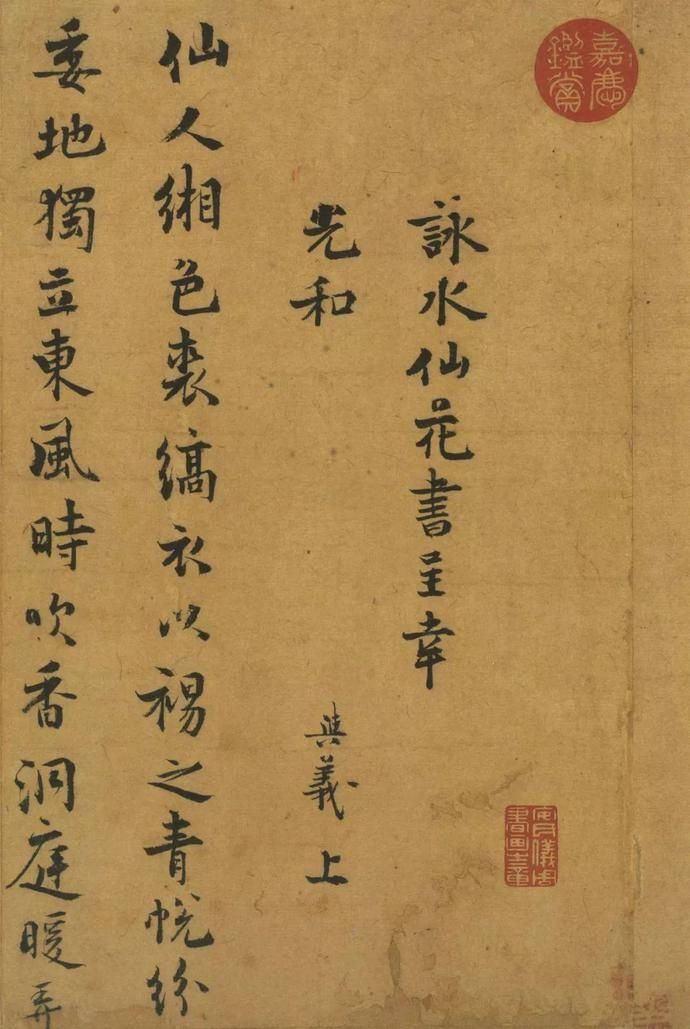 嘉慶鑑賞
詠水仙花書呈幸
光和　與義上
仙人緗色裘縞衣以裼之青帨紛
委地獨立東風時吹香洞庭暖弄
安儀周
書畫之章